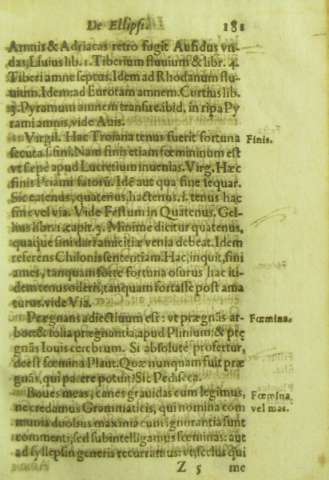 De Ellipsi. 181
Amnis & Adriacas retro fugit Aufidus vn-
das, Liuius lib. 1. Tiberim fluuium & lib. 4.
Tiberi amne septus. Idem ad Rhodanum flu-
uium. Idem: ad Eurotam amnem. Curtius lib.
3. Pyramum amnem transire. ibid, in ripa Py
rami amnis, vide Auis.
Virgil. Hac Troiana tenus fuerit fortuna Finis.
secuta. s. fini. Nam finis etiam fœmininum est
vt sępe apud Lucretium inuenias. Virg. Hæc
finis Priami fatorũ. Idẽ aut qua fine sequar.
Sic eatenus, quatenus, hactenus. i. tenus hac
fine vel via. Vide Festum in Quatenus. Gel-
lius libr. 1. capit. 3. Minime dicitur quatenus,
quaque fini dari amicitiæ venia debeat. Idem
referens Chilonis sententiam. Hac, inquit, fini
ames, tanquam forte fortuna osurus hac iti-
dem tenus oderis, tanquam fortasse post ama
turus. vide Via.
Prægnans adiectiuum est: vt prægnãs ar- Fœmina.
bor & folia prægnantia, apud Plinium: & prę
gnãs Iouis cerebrum. Si absolutè profertur,
deest fœmina Plaut. Quæ nunquam fuit præ
gnãs, qui parere potuit? Sic Pedisequa.
Boues meas, canes grauidas cum legimus, Fœmina
ne credamus Grammaticis, qui nomina com vel mas.
munia duolus maxima cum ignorantia sunt
commenti, sed subintelligamus fœminas: aut
ad syllepsin generis recurramus: vt, seclus qui
Z 5 me